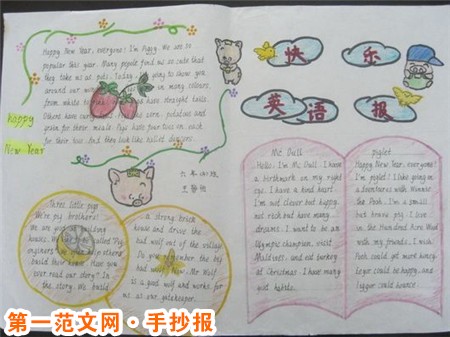 Happy New Year, everyone! I'm Piggy. We are so
popular this year. Many people find us so cute that
they take us as pets. Today, I am going to show you
around our in many colours
from white to have straight tails.
Others have cur corn, potatoes and
grain for their meals. Pigs have four toes on each
for their hoof. And they look like ballet dancers.
Happy
New Year
快乐
英语报
Three little pigs
We're pig brothers!
we are
house. We called Pig
engineers others
build their house. Have you
ever read our story? In
the story, We build
a strong brick
house and drive the
bad wolf out of the village.
Do you remember the big
bad Mr Wolf
is a good and works for
us as our gatekeeper.
Mc Dull
Hello, I'm Mc Dull. I have
a birthmark on my right
eye. I have a kind heart.
I'm not clever but happy,
not rich but have many
dreams. I want to be an
Olympic champion, visit
Maldives, and eat turkey
at Christmas. I have many
good habits.
piglet
Happy New Year, everyone!
I'm piglet! I like going on
adventures with Winnie
the Pooh. I'm a small
but brave pig. I live in
the Hundred Acre Wood
with my friends. I wish
Pooh could get more honey,
Eeyore could be happy, and
Tigger could bounce.
第一范文网·手抄报